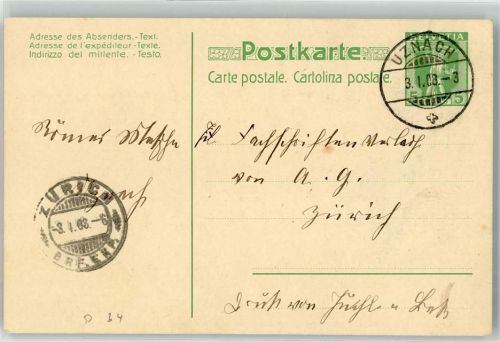 Adresse des Absenders.-Text.
Adresse de l'expéditeur.-Texte.
Indirizzo del mittente.-Testo.
Postkarte.
Carte postale. Cartolina postale.
HELVETIA
5 5
UZNACH
3.I.08.-3
Tit. Fachschriften Verlag
von A. G.
Zürich
Druck von
ZÜRICH
-3.I.08.-6
BRF. EXP.
D 34